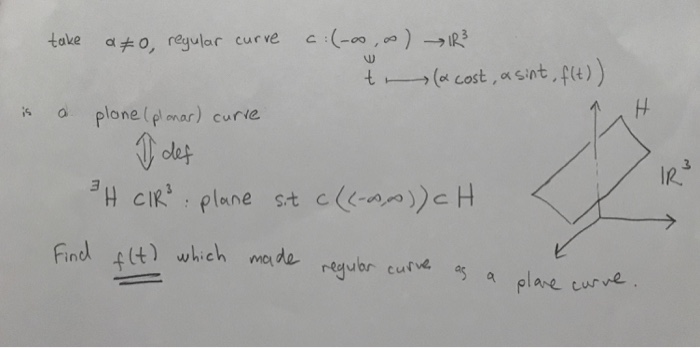 take a≠0, regular curve c : (-∞,∞) → ℝ³
∈
t ↦ (a cost, a sint, f(t))
is a plane(planar) curve
⇕ def
∃H ⊂ ℝ³ : plane s.t c((-∞,∞)) ⊂ H
H
ℝ³
Find f(t) which made regular curve as a plane curve.